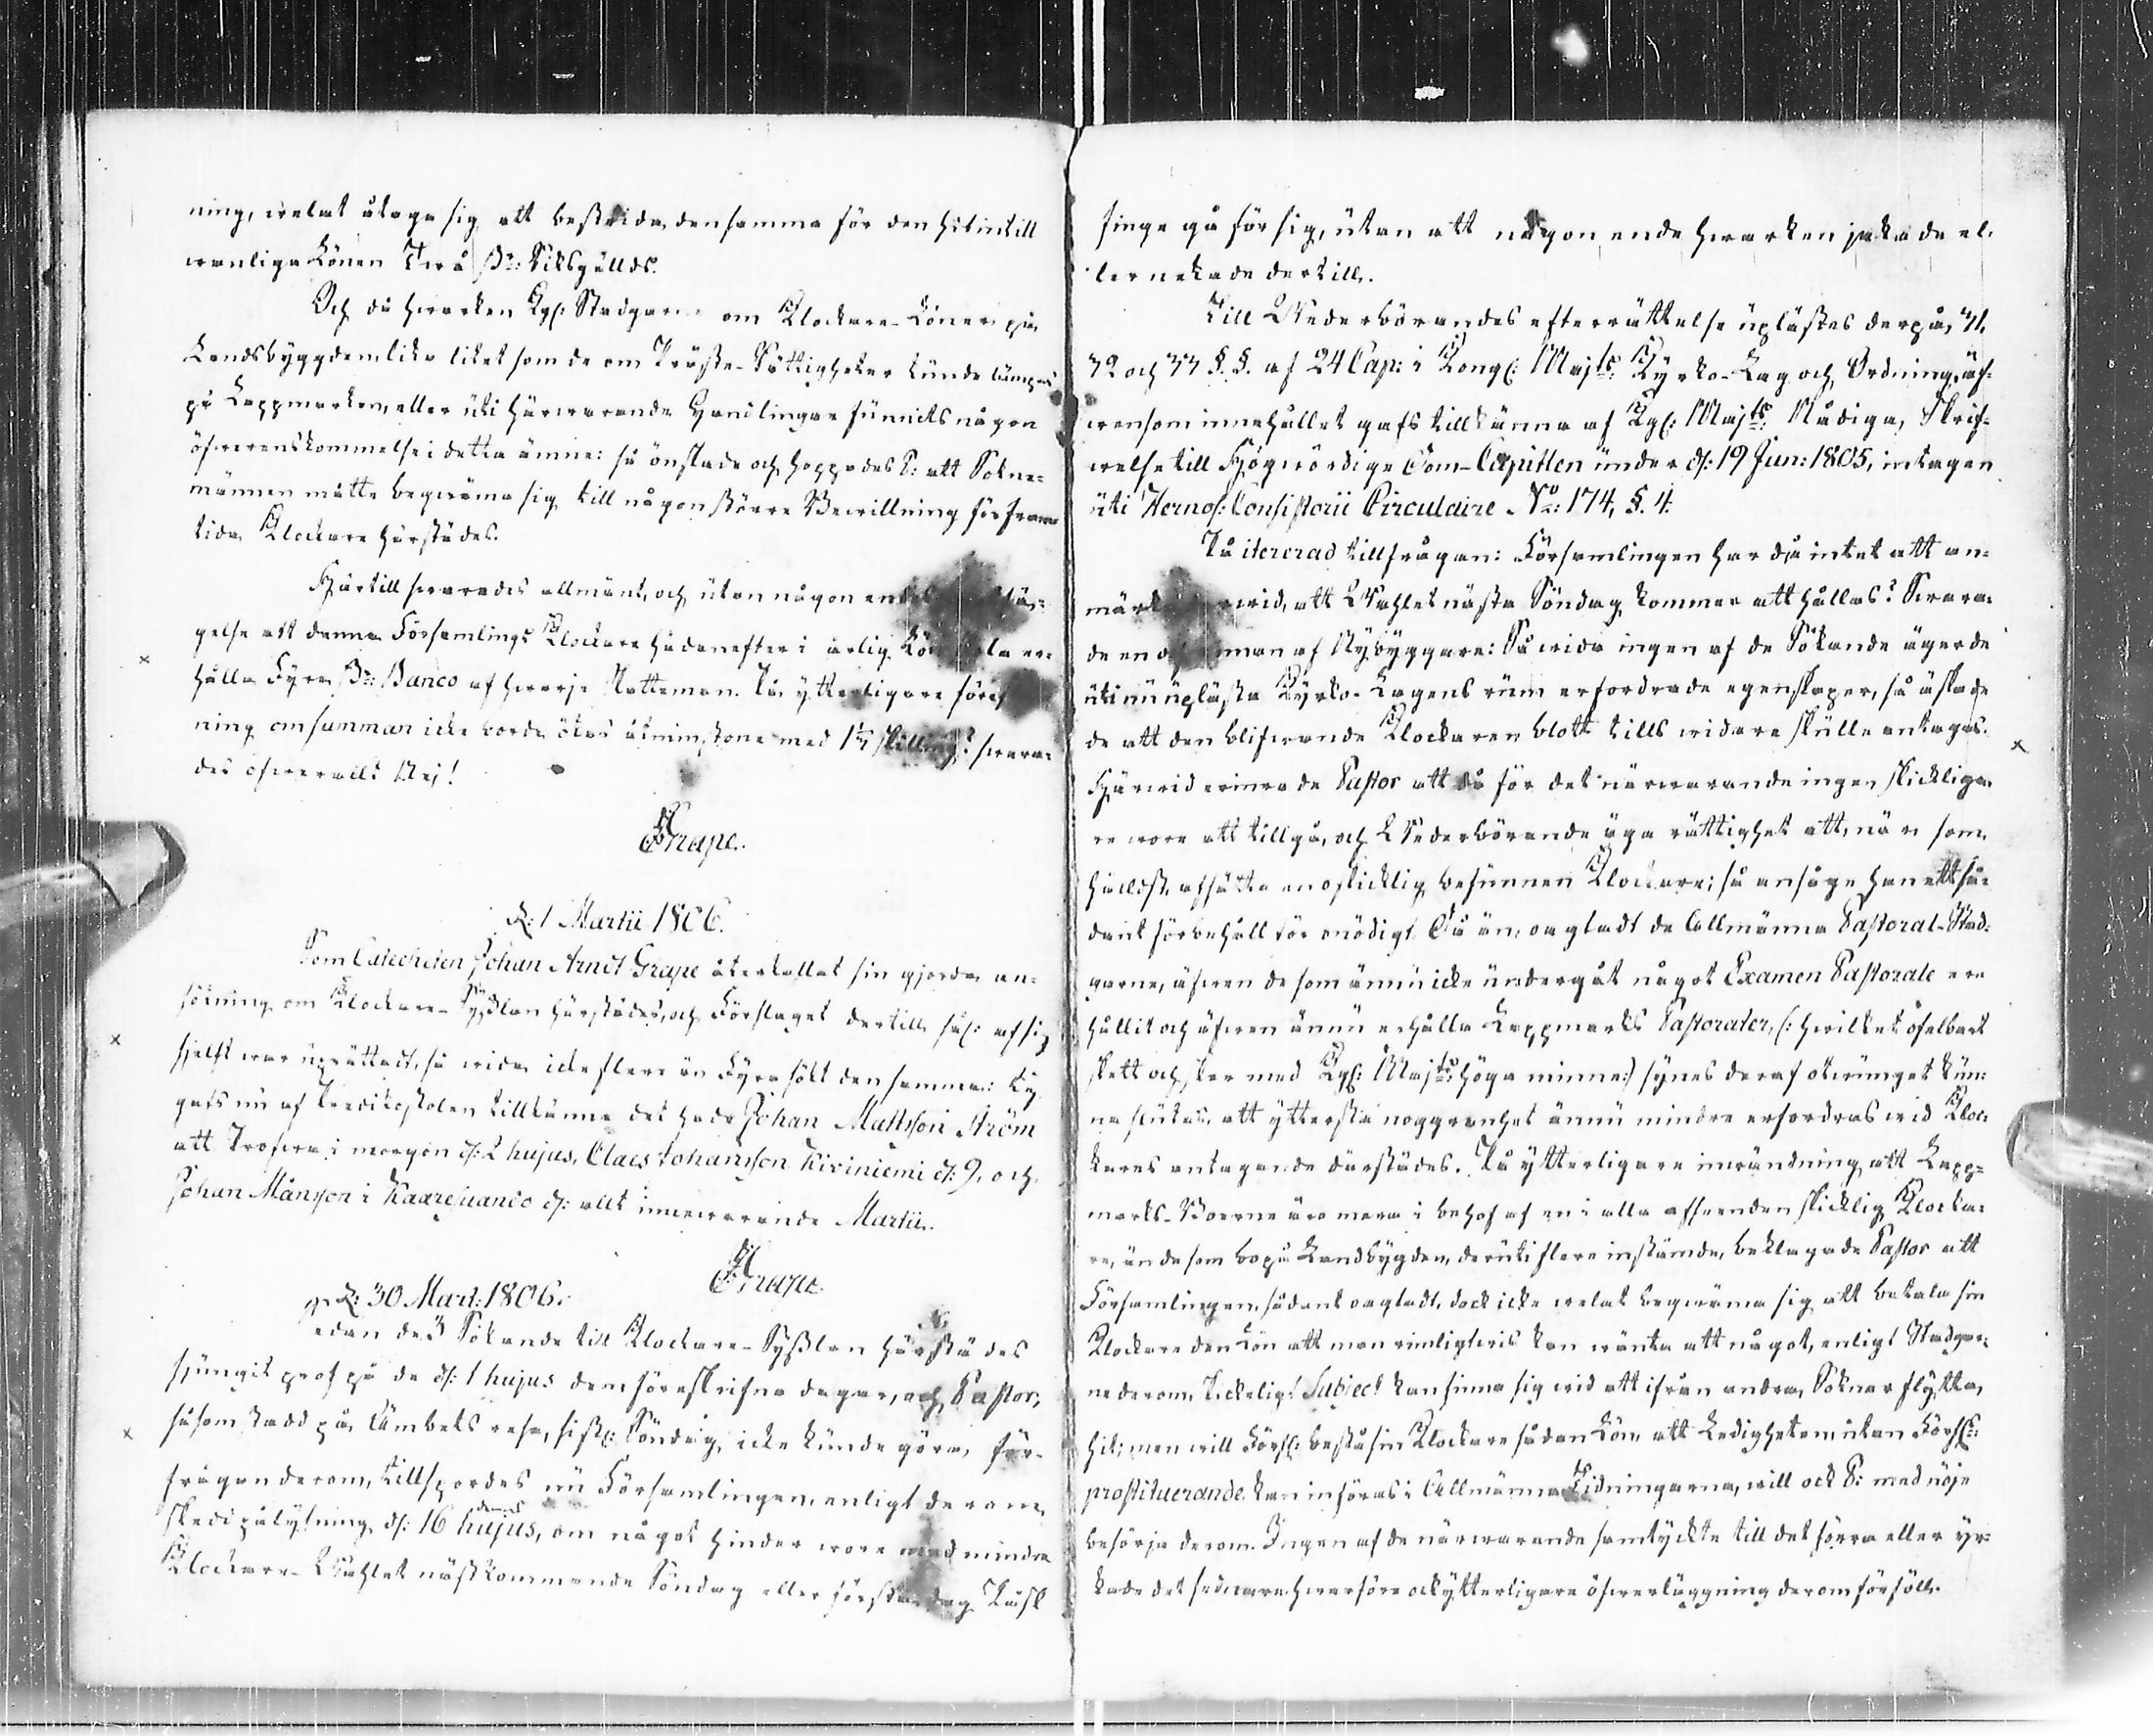 ning, welat åtaga sig att bestrida densamma för den hitintill
wanliga Lönen Två ß:r Riksgälds.
Och då hwarken Kgl: Stadgarne om Klockare-Löner på
Landsbyggden lika litet som de om Präste-Rättigheter kunde lämpas
på Lappmarken, eller uti härwarande Handlingar funnits någon
öfwerenskommelse i detta ämne: så önskade och hoppades P: att Sokne-
männen måtte beqwäma sig till någon större Bewillning för fram-
tida Klockare härstädes.
Härtill swarades allmänt, och utan någon
gelse att denna Församlings Klockare hädanefter i årlig Lön er-
hålla Fyra ß:r Banco af hwarje Skatteman. På ytterligare
ning om summan icke borde ökas åtminstone med 1 skilling? swara-
des öfweralt Nej!
Grape.
D: 1 Martii 1806.
Som Catecheten Johan Arndt Grape återkallat sin gjorda an-
sökning om Klockare-Sysslan härstädes, och Förslaget dertill af sig
sjelft war uprättadt, så wida icke flere än Fyra sökt den samma: Ty
gafs nu af Predikostolen tillkänna det hade Johan Mattsson Ström
att Profwa i morgon d: 2 hujus, Claes Johansson Kiviniemi d: 9, och
Johan Månsson i Kaaresuando d: allt innewarande Martii.
Grape.
D: 30 Mart: 1806.
Sedan de 3 Sökande till Klockare-Sysslan härstädes
sjungit prof på de d: 1 hujus dem föreskrifne dagar, och Pastor,
såsom stadd på Ämbets resa, sistl: Söndag icke kunde göra för-
frågan derom, tillspordes nu Församlingen, enligt derom
skedd pålysning d: 16 hujus, om något hinder wore med mindre
Klockare-Wahlet nästkommande Söndag eller första dag Påsk
finge gå för sig, utan att någon enda hwarken jakade el-
ler nekade dertill.
Till Wederbörandes efterrättelse uplästes derpå, 31,
32 och 33 §.§. af 24 Cap: i Kongl: Maj:ts Kyrko-Lag och Ordning, äf-
wensom innehållet gafs tillkänna af Kgl: Maj:ts Nådiga Skrif-
welse till Högwördige Dom-Capitlen under d: 19 Jun: 1805, intagen
uti Hernös: Consistorii Circulaire N:o 174, §. 4.
På itererad tillfrågan: Församlingen har då intet att an-
wid, att Wahlet nästa Söndag kommer att hållas? Swara-
de en och annan af Nybyggare: Så wida ingen af de Sökande ägerde
uti nu uplästa Kyrko-Lagens rum erfordrade egenskaper, så äskade
de att den blifwande Klockaren blott tills widare skulle antagas.
Härwid erinrade Pastor att då för det närwarande ingen skickliga-
re wore att tillgå, och Wederbörande äga rättighet att, när som
hälldst, afsätta en oskicklig befunnen Klockare; så ansåge han ett så-
dant förbehåll för onödigt. Då än, oagtadt de Allmänna Pastoral-Stad-
garne, äfwen de som ännu icke undergåt något Examen Pastorale er-
hållit och äfwen ännu erhålla Lappmarks Pastorater, (: hwilket ofelbart
skett och sker med Kgl: Maj:ts höga minne:) synes deraf otwunget kun-
na slutas, att ytterstа noggranhet ännu mindre erfordras wid Kloc-
kares antagande därstädes. På ytterligare inwändning att Lapp-
marks-Boerne äro mera i behof af en i alla afseenden skicklig Klocka-
re, än de som bo på Landbygden, deruti flere instämde, beklagade Pastor att
Församlingen, sådant oagtadt, dock icke welat beqwäma sig att betala sin
Klockare den Lön att man rimligtwis kan wänta att något, enligt Stadgar-
ne derom, Skickeligt Subject kan finna sig wid att ifrån andra Soknar flytta
hit; men will Förs: bestå sin Klockare sådan Lön, att Ledigheten utan Förs:
prostituerande kan införas i Allmänna Tidningarna, will ock P: med nöje
besörja derom. Ingen af de närwarande samtyckte till det förra eller yr-
kade det sednare hwarföre ock ytterligare öfwerläggning derom förföll.